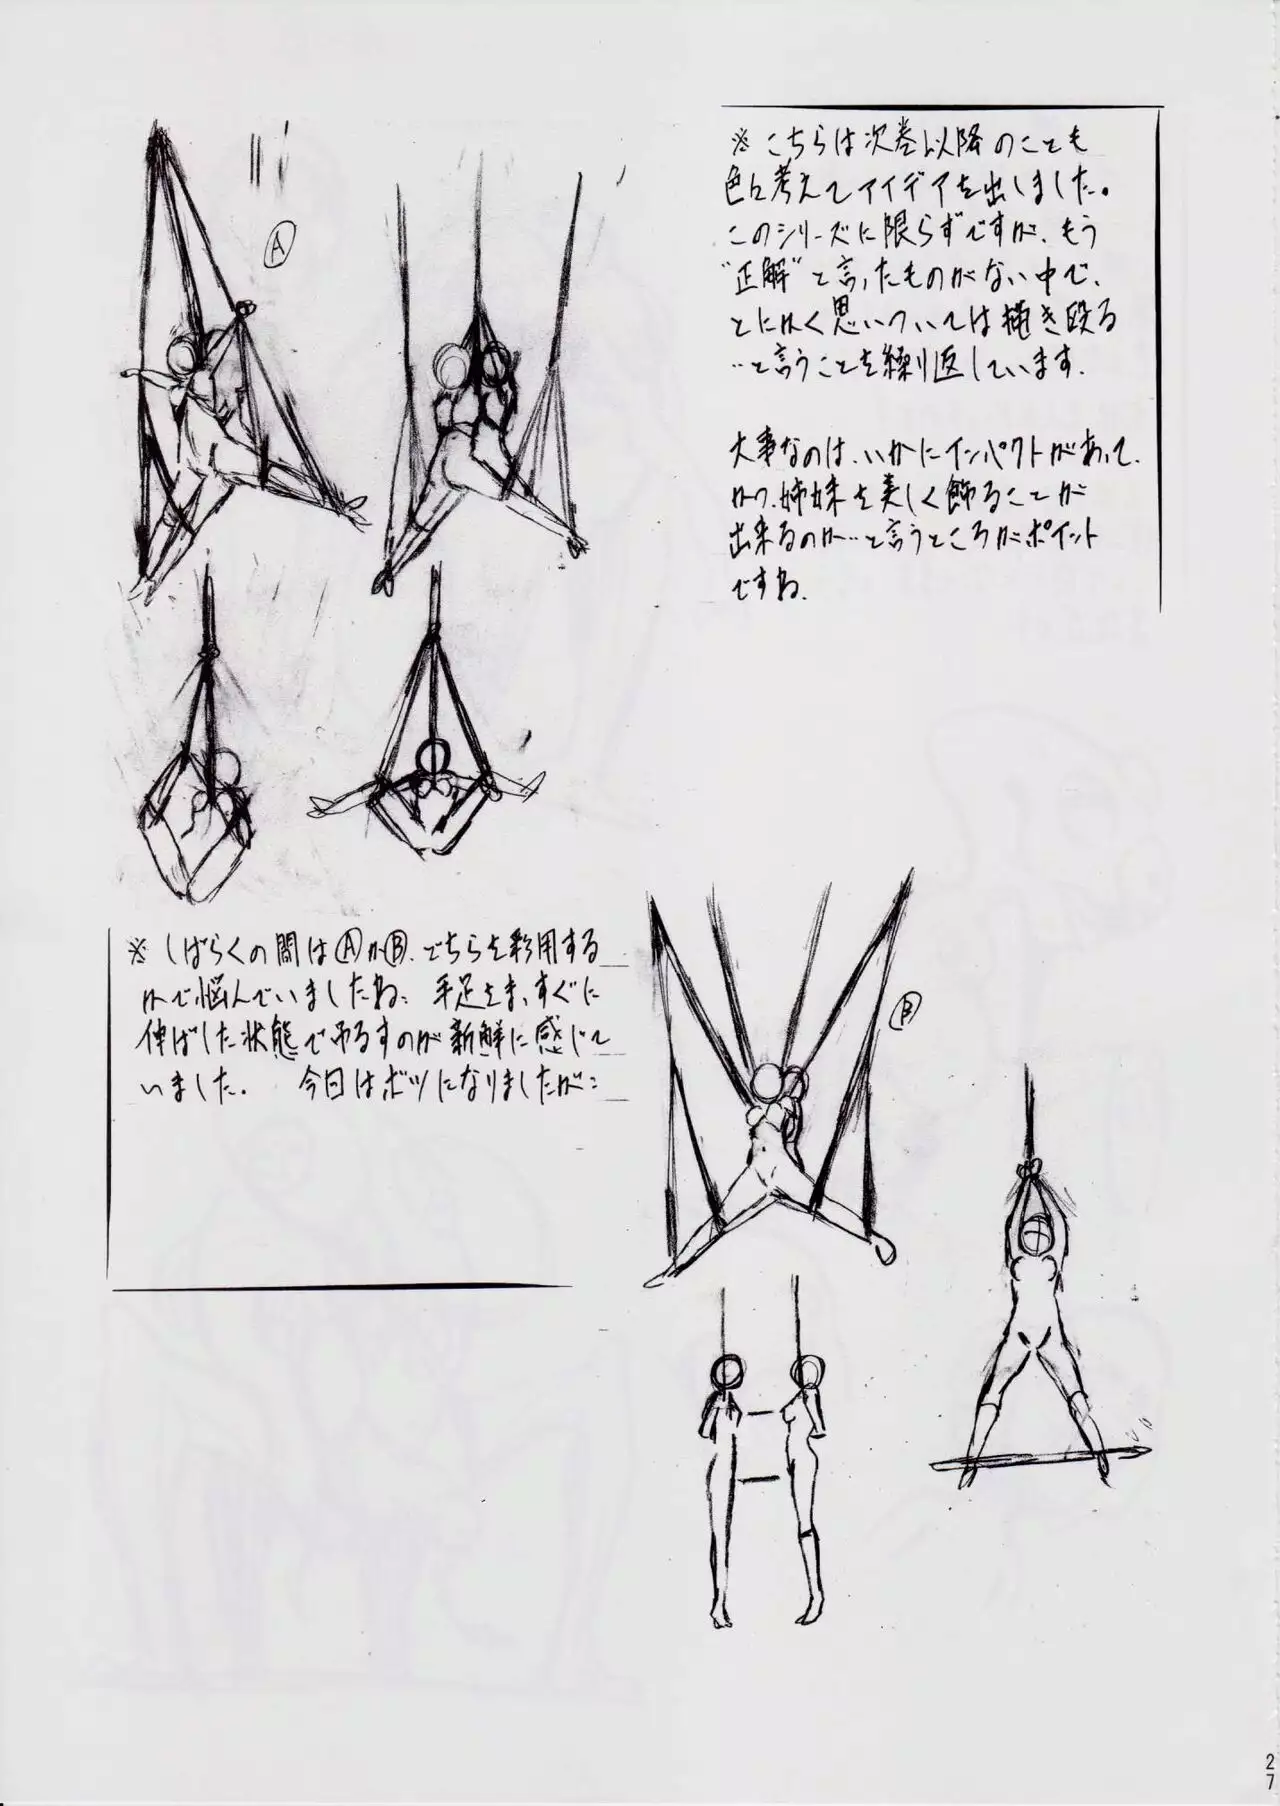 ※こちらは次巻以降のことも
色々考えてアイデアを出しました。
このシリーズに限らずですが、もう
"正解"と言ったものがない中で、
とにかく思いついては描き殴る
…と言うことを繰り返しています。
大事なのは、いかにインパクトがあって、
かつ、姉妹を美しく飾ることが
出来るのか…と言うところがポイント
ですね。
Ⓐ
※しばらくの間はⒶかⒷ、どちらを採用する
かで悩んでいましたね… 手足をまっすぐに
伸ばした状態で吊るすのが新鮮に感じて
いました。 今回はボツになりましたが…
Ⓑ
27